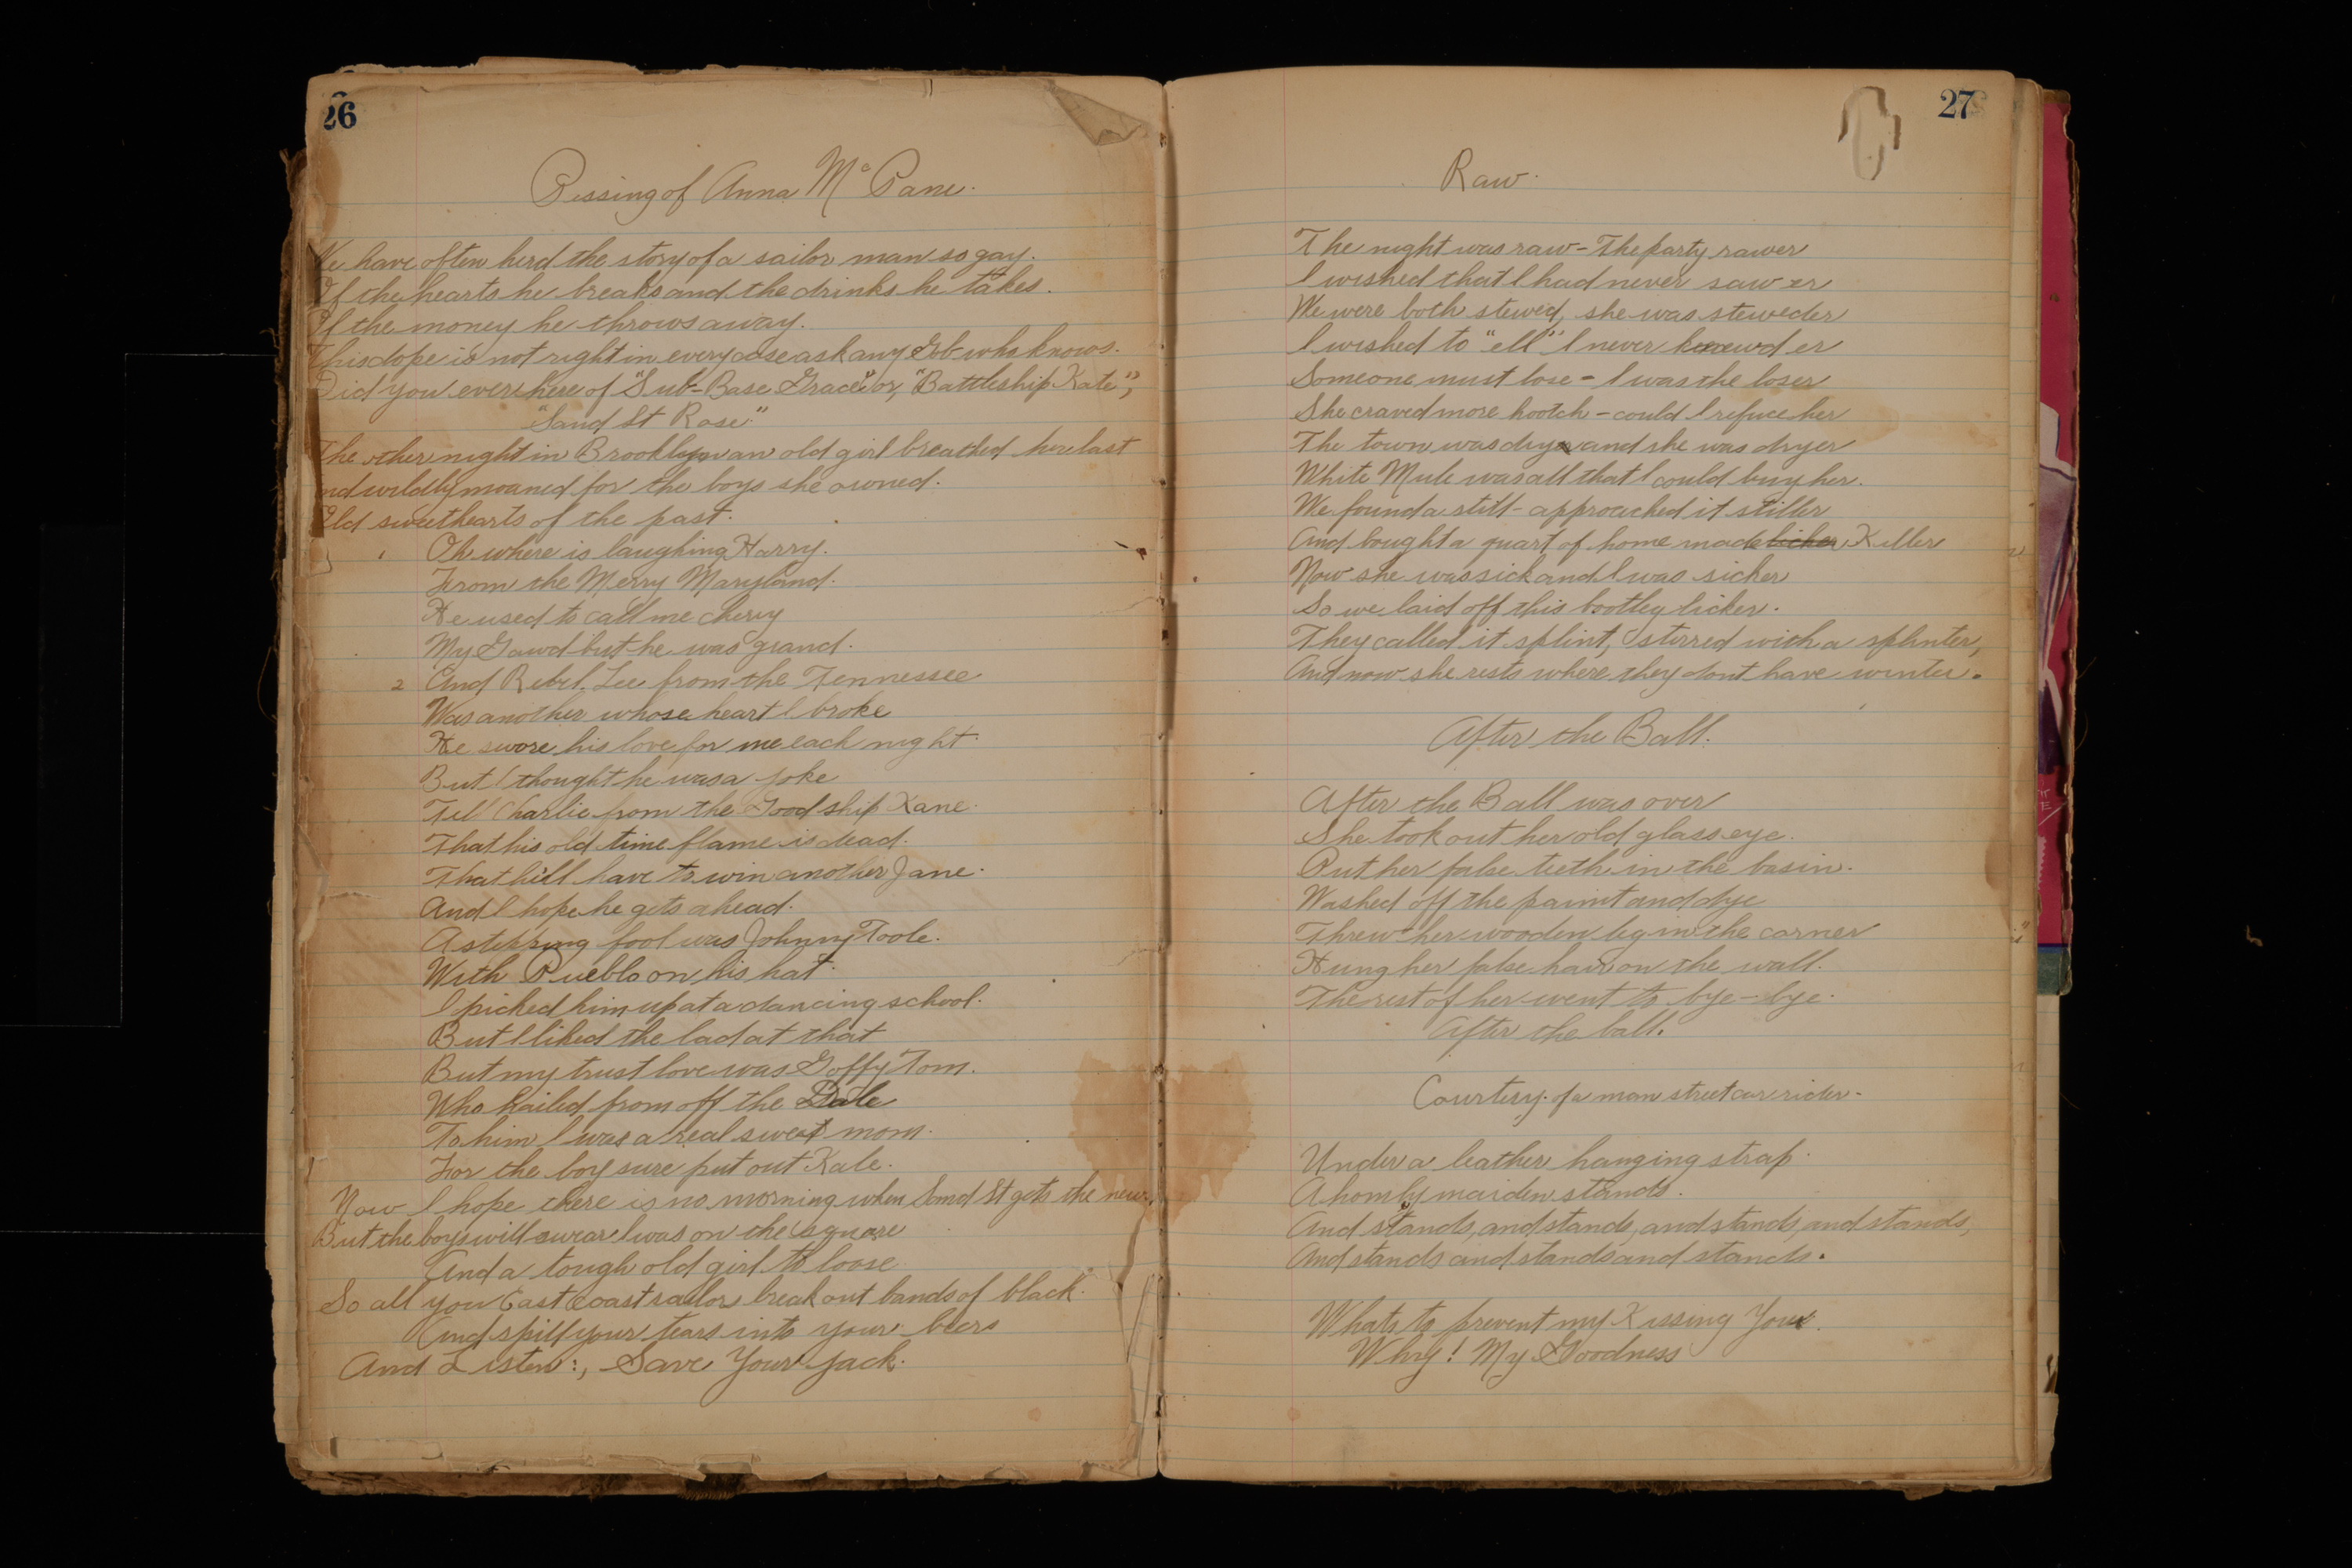 26
Pissing of Anna Mc Pane.
We have often herd the story of a sailor man so gay.
Of the hearts he breaks and the drinks he takes.
Of the money he throws away.
This dope is not right in every case ask any Gob who knows.
Did you ever here of "Sub-Base Grace" or, "Battleship Kate",
"Sand St Rose"
The other night in Brooklyn an old girl breathed her last
And wildly moaned for the boys she owned.
Old sweethearts of the past.
1 Oh where is laughing Harry.
From the Merry Maryland.
He used to call me cherry
My Gawd but he was grand.
2 And Rebel Lee from the Tennessee
Was another whose heart I broke
He swore his love for me each night.
But I thought he was a joke
Tell Charlie from the Good ship Kane.
That his old time flame is dead.
That hell have to win another Jane.
And I hope he gets ahead.
A stepping fool was Johnny Toole.
With Pueblo on his hat.
I picked him up at a dancing school.
But I liked the lad at that
But my trust love was Goffy Tom.
Who hailed from off the Dale
To him I was a real sweet mom.
For the boy sure put out Kale.
Now I hope there is no morning when Sand St gets the news.
But the boys will swear I was on the square
And a tough old girl to loose
So all you East coast sailors break out bands of black.
And spill your tears into your beers
And Listen:, Save Your jack.
27
Raw.
The night was raw - The party rawer
I wished that I had never saw er
We were both stewed, she was steweder
I wished to "ell" I never knewd er
Someone must lose - I was the loser
She craved more hootch - could I refuce her
The town was dry and she was dryer
White Mule was all that I could buy her.
We found a still - approached it stiller
And bought a quart of home made licker Killer
Now she was sick and I was sicker
So we laid off this bootleg licker.
They called it splint, stirred with a splinter,
And now she rests where they dont have winter.
After the Ball.
After the Ball was over
She took out her old glass eye.
Put her false teeth in the basin.
Washed off the paint and dye
Threw her wooden leg in the corner
Hung her false hair on the wall.
The rest of her went to bye-bye.
After the ball.
Courtesy. of a man street car rider.
Under a leather hanging strap.
A homly maiden stands.
And stands, and stands, and stands, and stands,
And stands and stands and stands.
Whats to prevent my Kissing You.
Why! My Goodness